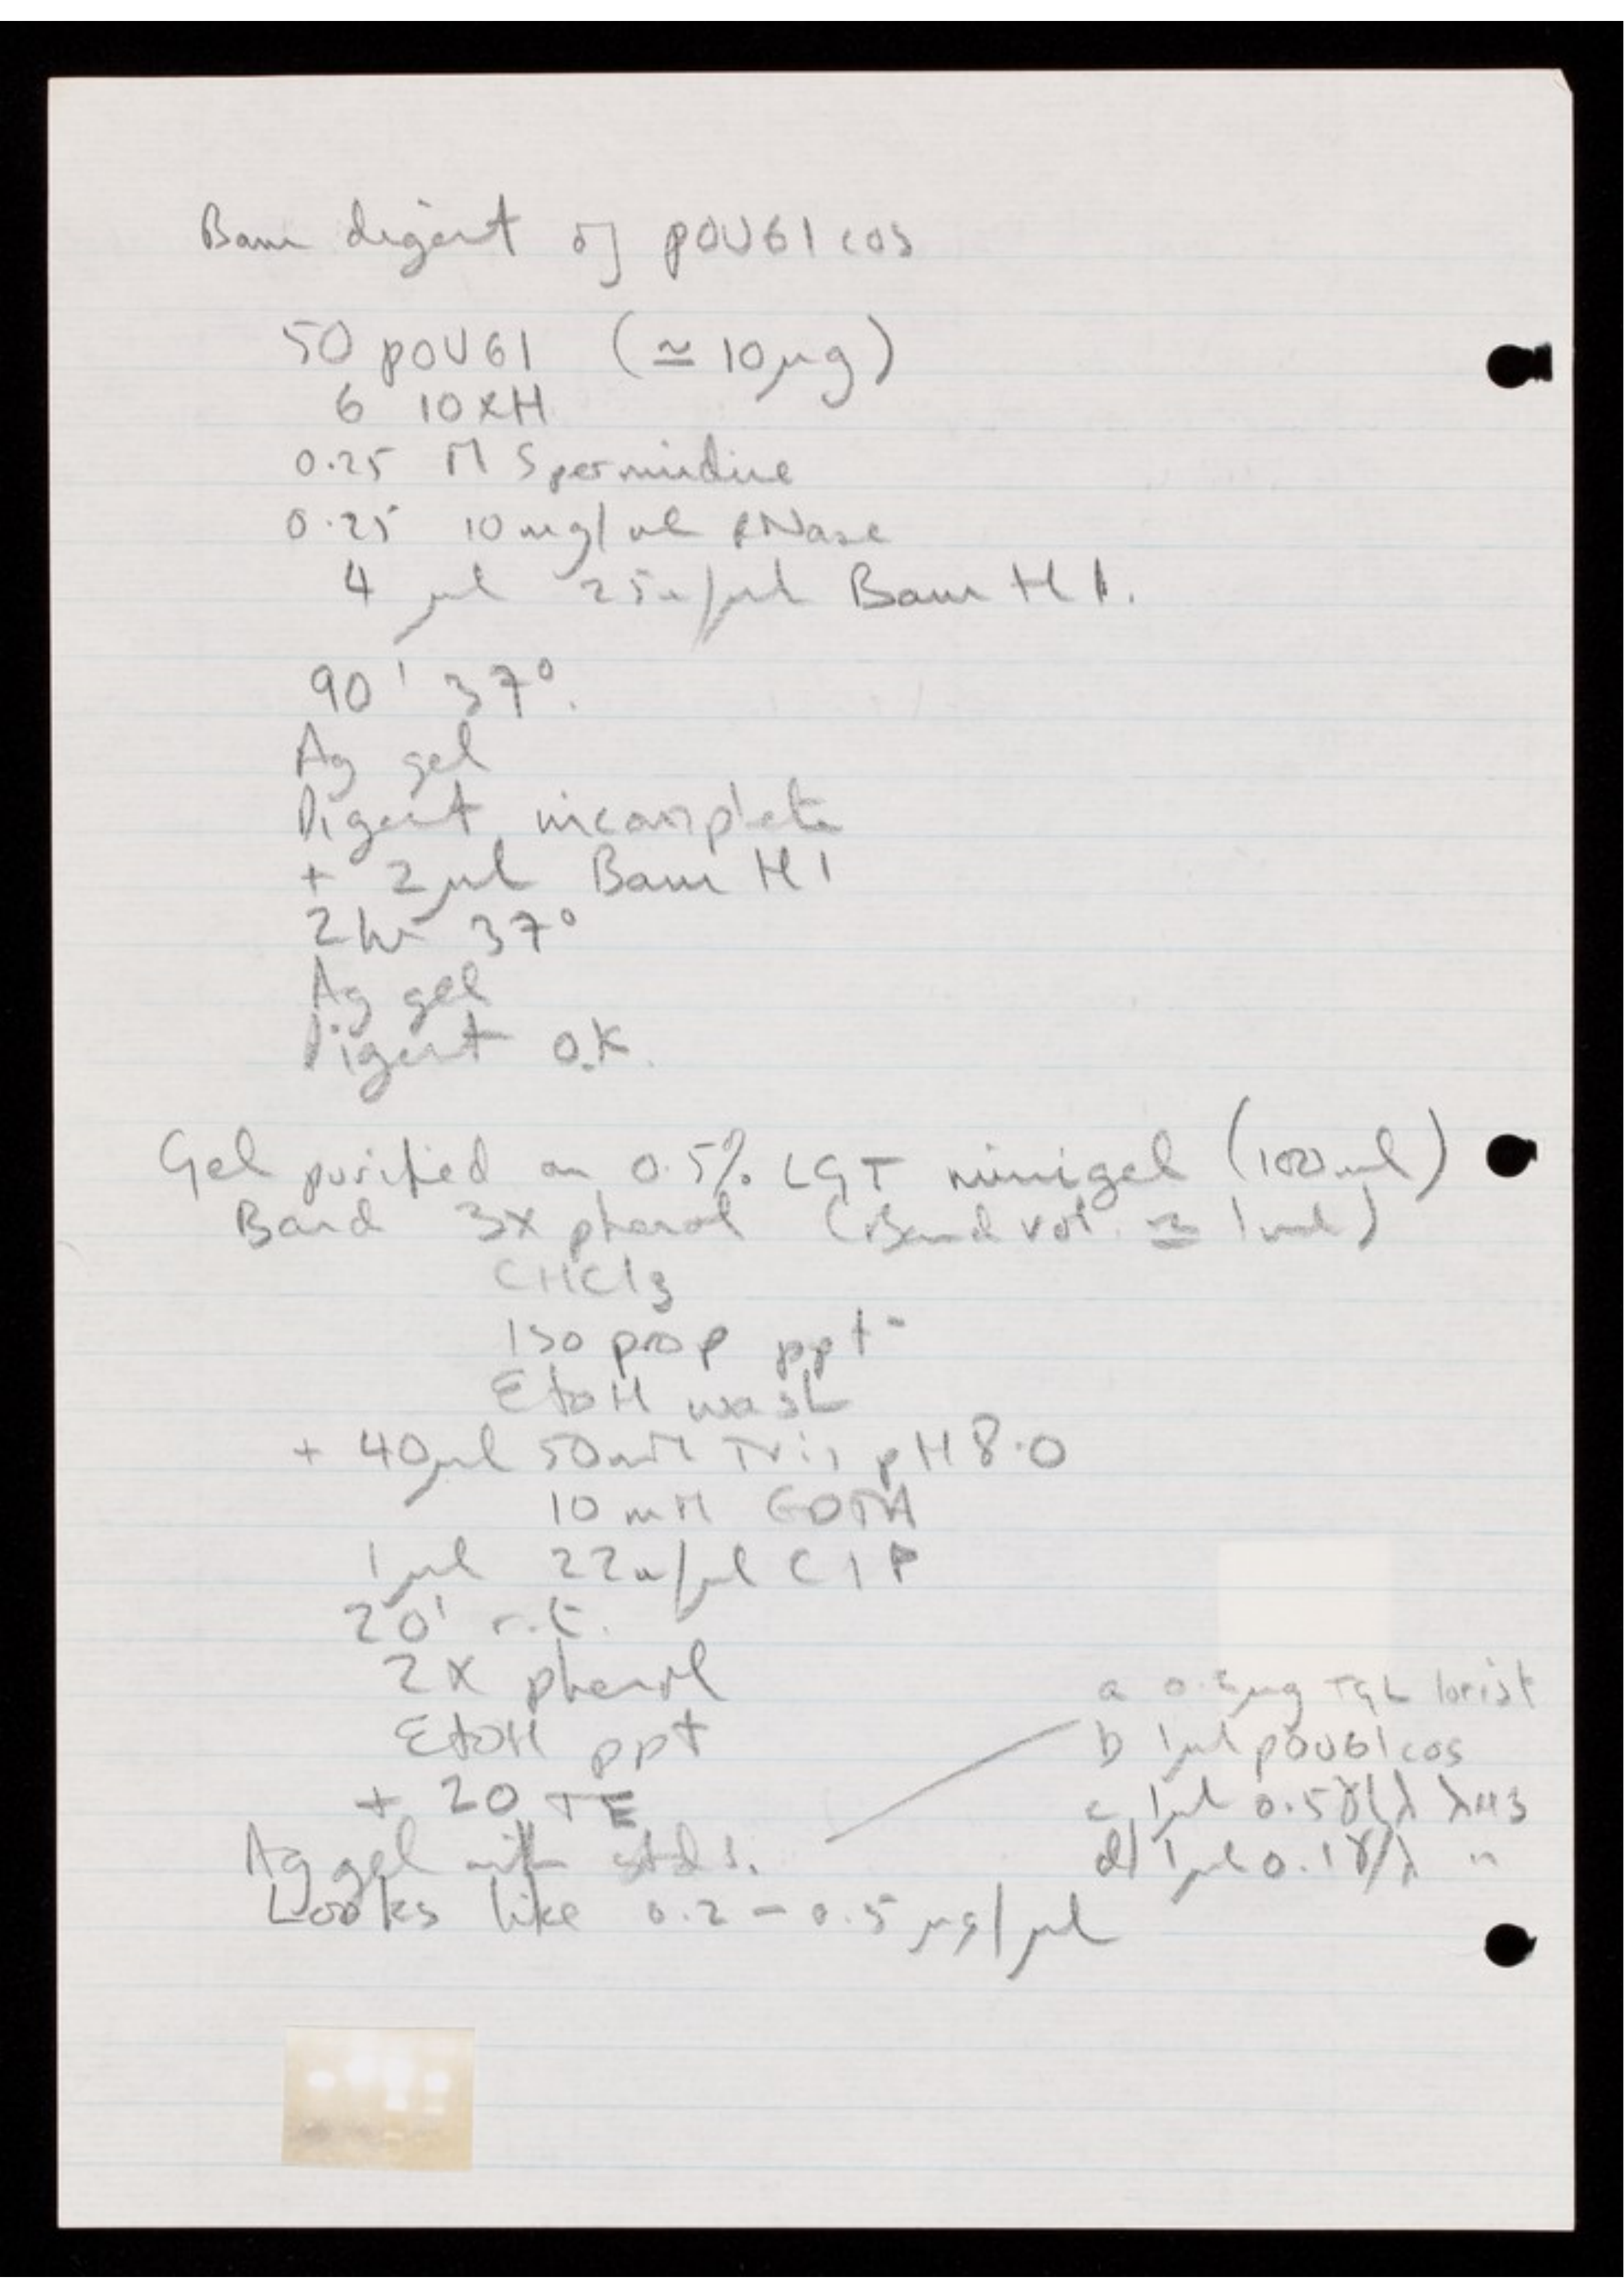 Bam digest of pOU61cos
50 pOU61 (≃ 10μg)
6 10xH
0.25 M Spermidine
0.25 10mg/ml RNase
4 μl 25u/μl Bam H1.
90' 37°.
Ag gel
Digest incomplete
+ 2μl Bam H1
2 hr 37°
Ag gel
Digest O.K.
Gel purified on 0.5% LGT minigel (100ml)
Band 3x phenol (Band vol. ≃ 1ml)
CHCl3
Iso prop ppt
EtOH wash
+ 40μl 50mM Tris pH8.0
10mM EDTA
1μl 22u/μl CIP
20' r.t.
2x phenol
EtOH ppt
+ 20 TE
Ag gel with stds.
Looks like 0.2 - 0.5 μg/μl
a 0.5μg TGL lorist
b 1μl pOU61cos
c 1μl 0.5γ/λ λH3
d) 1μl 0.1γ/λ "